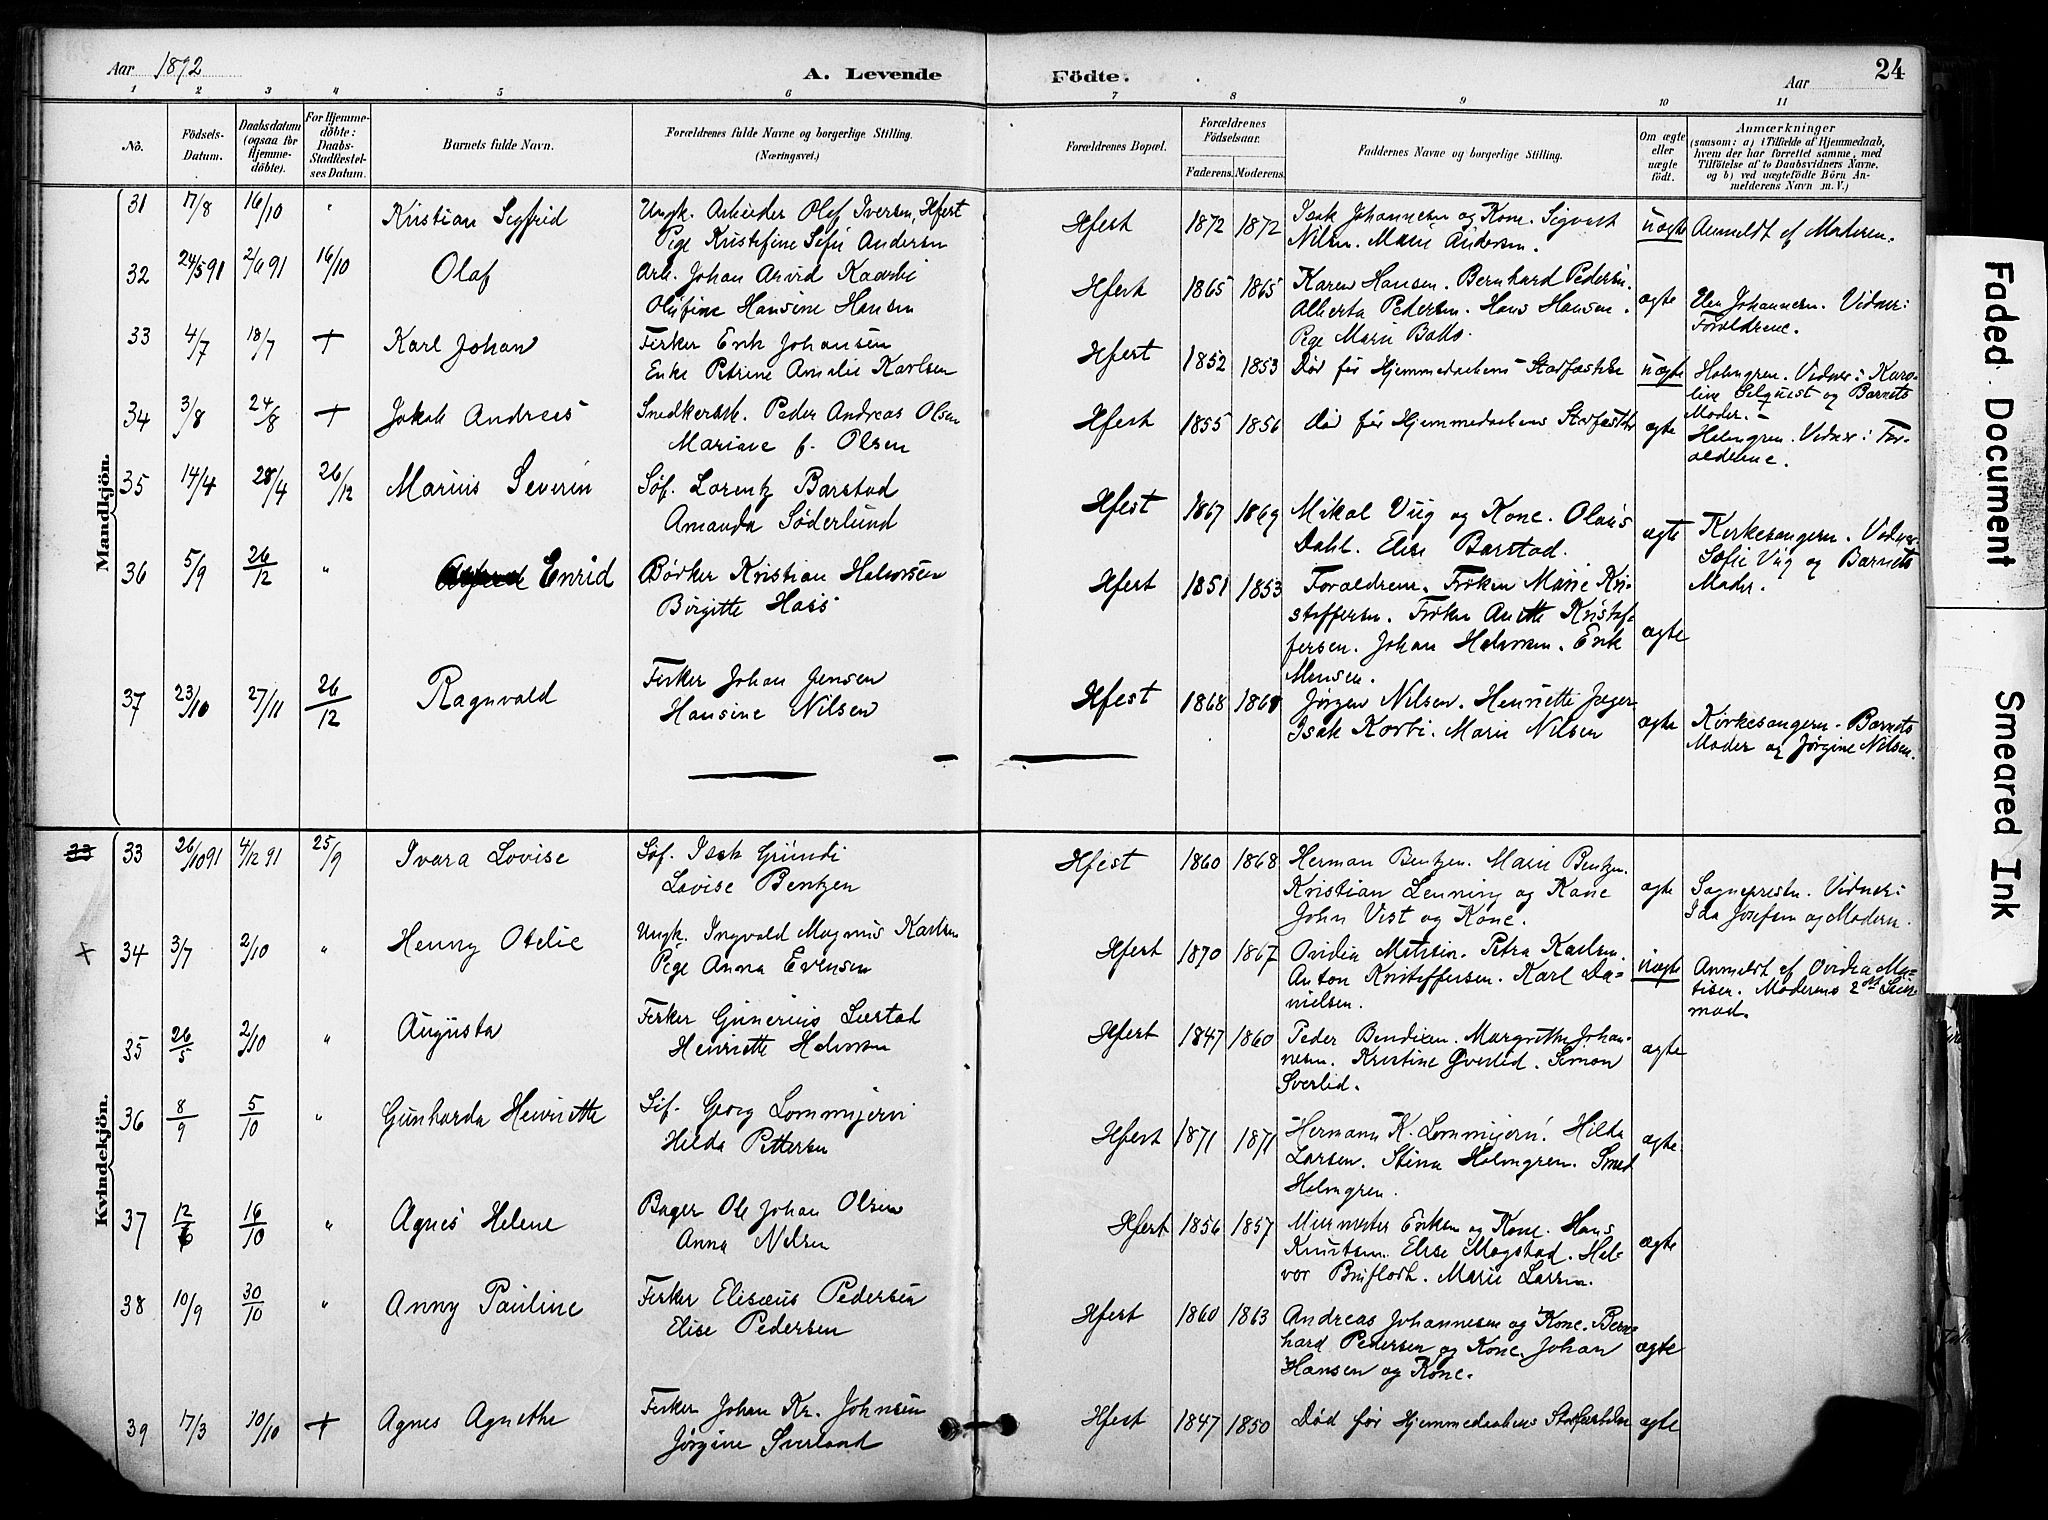 Aar 1892
A. Levende
Födte.
Aar
24
1 2 3 4 5 6 7 8 9 10 11
No.
Födsels-Datum.
Daabsdatum (ogsaa for Hjemme-döbte).
For Hjemme-döbte: Daabs-Stadfæstel-ses Datum.
Barnets fulde Navn.
Forældrenes fulde Navne og borgerlige Stilling. (Næringsvei.)
Forældrenes Bopæl.
Forældrenes Födselsaar.
Faderens. Moderens.
Faddernes Navne og borgerlige Stilling.
Om ægte eller uægte födt.
Anmærkninger
(saasom: a) i Tilfælde af Hjemmedaab, hvem der har forrettet samme, med Tilföielse af to Daabsvidners Navne, og b) ved uægtefödte Börn An-melderens Navn m. V.)
Mandkjön.
31 17/8 16/10 " Kristian Sigfrid
Ungk. Arbeider Olaf Iversen, Hfest
Pige Kristofine Sofie Andersen
Hfest 1872 1872
Isak Johannesen og Kone. Sigvart
Nilsen. Marie Andersen.
uægte
Anmeldt af Moderen.
32 24/5 91 2/6 91 16/10 Olaf
Arb. Johan Arvid Kaarbi
Olufine Hansine Hansen
Hfest 1865 1865
Karen Hansen. Bernhard Pedersen.
Alberta Pedersen. Hans Hansen.
Pige Marie Batts.
ægte
Elen Johannesen. Vidner:
Forældrene.
33 4/7 18/7 + Karl Johan
Fisker Erik Johansen
Enke Petrine Amalie Karlsen
Hfest 1852 1853
Død før Hjemmedaabens Stadfæstelse
uægte
Holmgren. Vidner: Karo-
line Selquist og Barnets
Moder.
34 3/8 24/8 + Jakob Andreas
Snedkersv. Peder Andreas Olsen
Mariane f. Olsen
Hfest 1855 1856
Død før Hjemmedaabens Stadfæstelse
ægte
Holmgren. Vidner: For-
ældrene.
35 14/4 28/4 26/12 Marius Severin
Søf. Lorentz Barstad
Amanda Søderlund
Hfest 1867 1869
Mikal Vug og Kone. Olaus
Dahl. Elise Barstad.
ægte
Kirkesangeren. Vidner
Sofie Vug og Barnets
Moder.
36 5/9 26/12 " Enrid
Børker Kristian Halvorsen
Birgitte Hass
Hfest 1851 1853
Forældrene. Frøken Marie Kri-
stoffersen. Frøken Anette Kristof-
fersen. Johan Halvorsen. Erik
Monsen.
ægte
37 23/10 27/11 26/12 Ragnvald
Fisker Johan Jensen
Hansine Nilsen
Hfest 1868 1861
Jørgen Nilsen. Henriette Jæger
Isak Korbi. Marie Nilsen
ægte
Kirkesangeren. Barnets
Moder og Jørgine Nilsen.
Kvindekjön.
33 33 26/10 91 4/12 91 25/9 Ivara Lovise
Søf. Isak Gründi
Lovise Bentzen
Hfest 1860 1868
Herman Bentzen. Marie Bentzen.
Kristian Lenning og Kone
John Vest og Kone.
ægte
Sognepresten. Vidner:
Ida Josefsen og Moderen.
+ 34 3/7 2/10 " Henny Otelie
Ungk. Ingvald Magnus Karlsen
Pige Anna Evensen
Hfest 1870 1867
Ovidia Matisen. Petra Karlsen.
Anton Kristoffersen. Karl Da-
nielsen.
uægte
Anmeldt af Ovidia Ma-
tisen. Moderens 2det Leier-
maal.
35 26/5 2/10 " Augusta
Fisker Gunerius Liestad
Henriette Halvorsen
Hfest 1847 1860
Peder Bendixen. Margrethe Johan-
nesen. Kristine Sverlid. Simon
Sverlid.
ægte
36 8/9 5/10 " Gunharda Henriette
Søf. Georg Lommijervi
Hilda Pettersen
Hfest 1871 1871
Hermann K. Lommijervi. Hilda
Larsen. Stina Holmgren. Smed
Holmgren.
ægte
37 12/6 16/10 " Agnes Helene
Bager Ole Johan Olsen
Anna Nilsen
Hfest 1856 1857
Murmester Eriksen og Kone. Hans
Knutsen. Elise Mogstad. Hal-
vor Brufladt. Marie Larsen.
ægte
38 10/9 30/10 " Anny Pauline
Fisker Elisæus Pedersen
Elise Pedersen
Hfest 1860 1863
Andreas Johannesen og Kone. Bern-
hard Pedersen og Kone. Johan
Hansen og Kone.
ægte
39 17/3 10/10 + Agnes Agnethe
Fisker Johan Kr. Johnsen
Jørgine Sverland
Hfest 1847 1850
Død før Hjemmedaabens Stadfæstelse
ægte
Faded Document
Smeared Ink